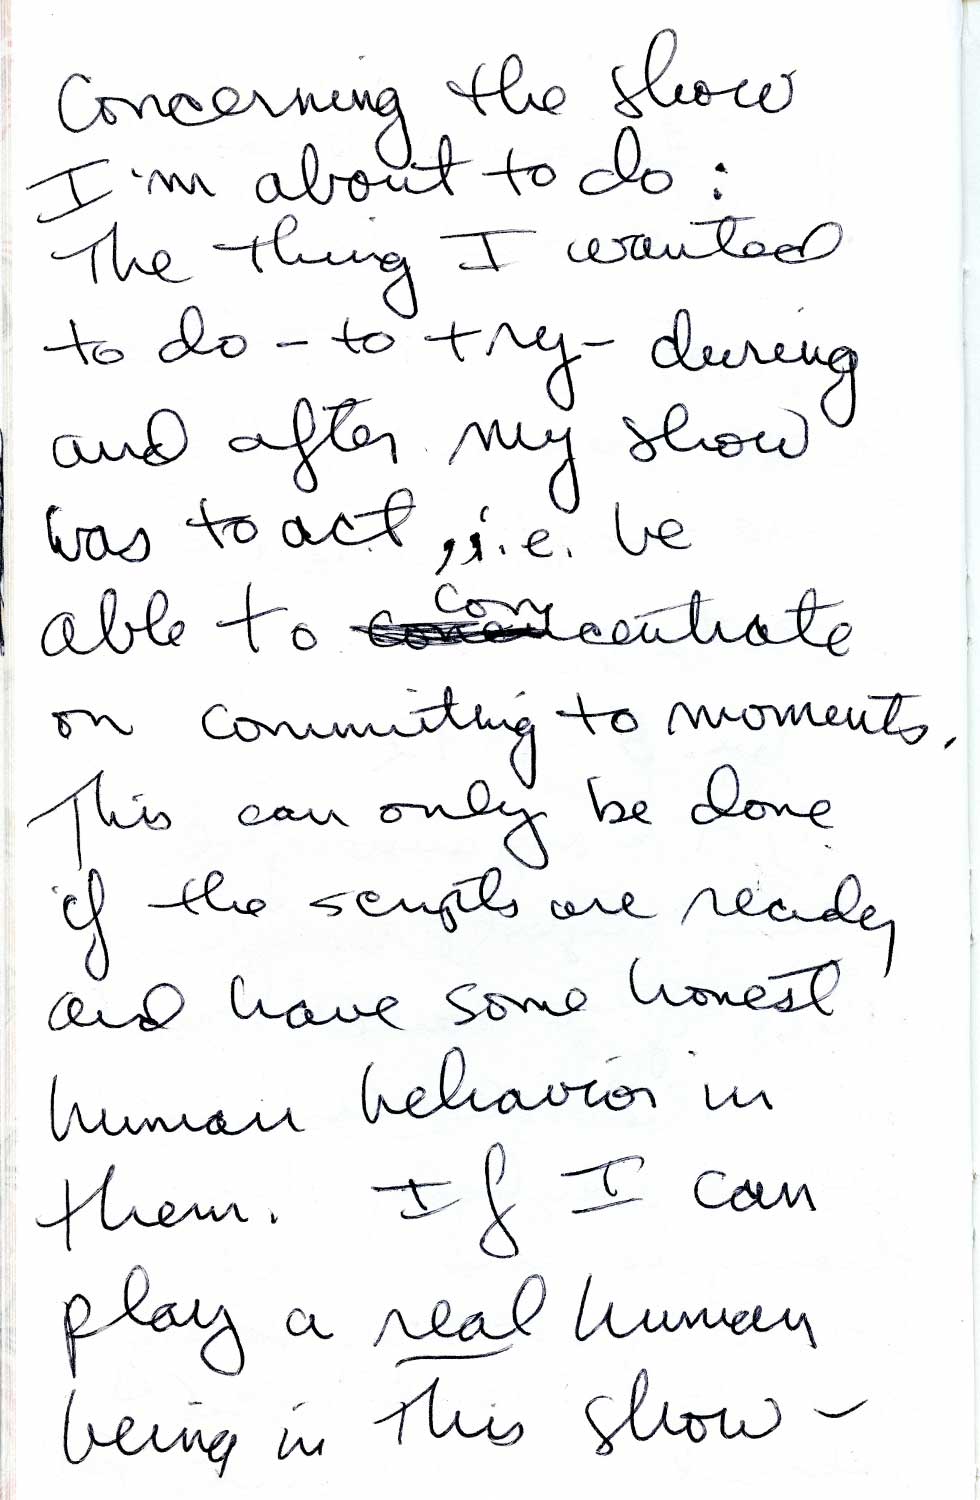 Concerning the show
I'm about to do:
The thing I wanted
to do - to try - during
and after my show
was to act, i.e. be
able to concentrate
on committing to moments.
This can only be done
if the scripts are ready
and have some honest
human behavior in
them. If I can
play a real human
being in this show -